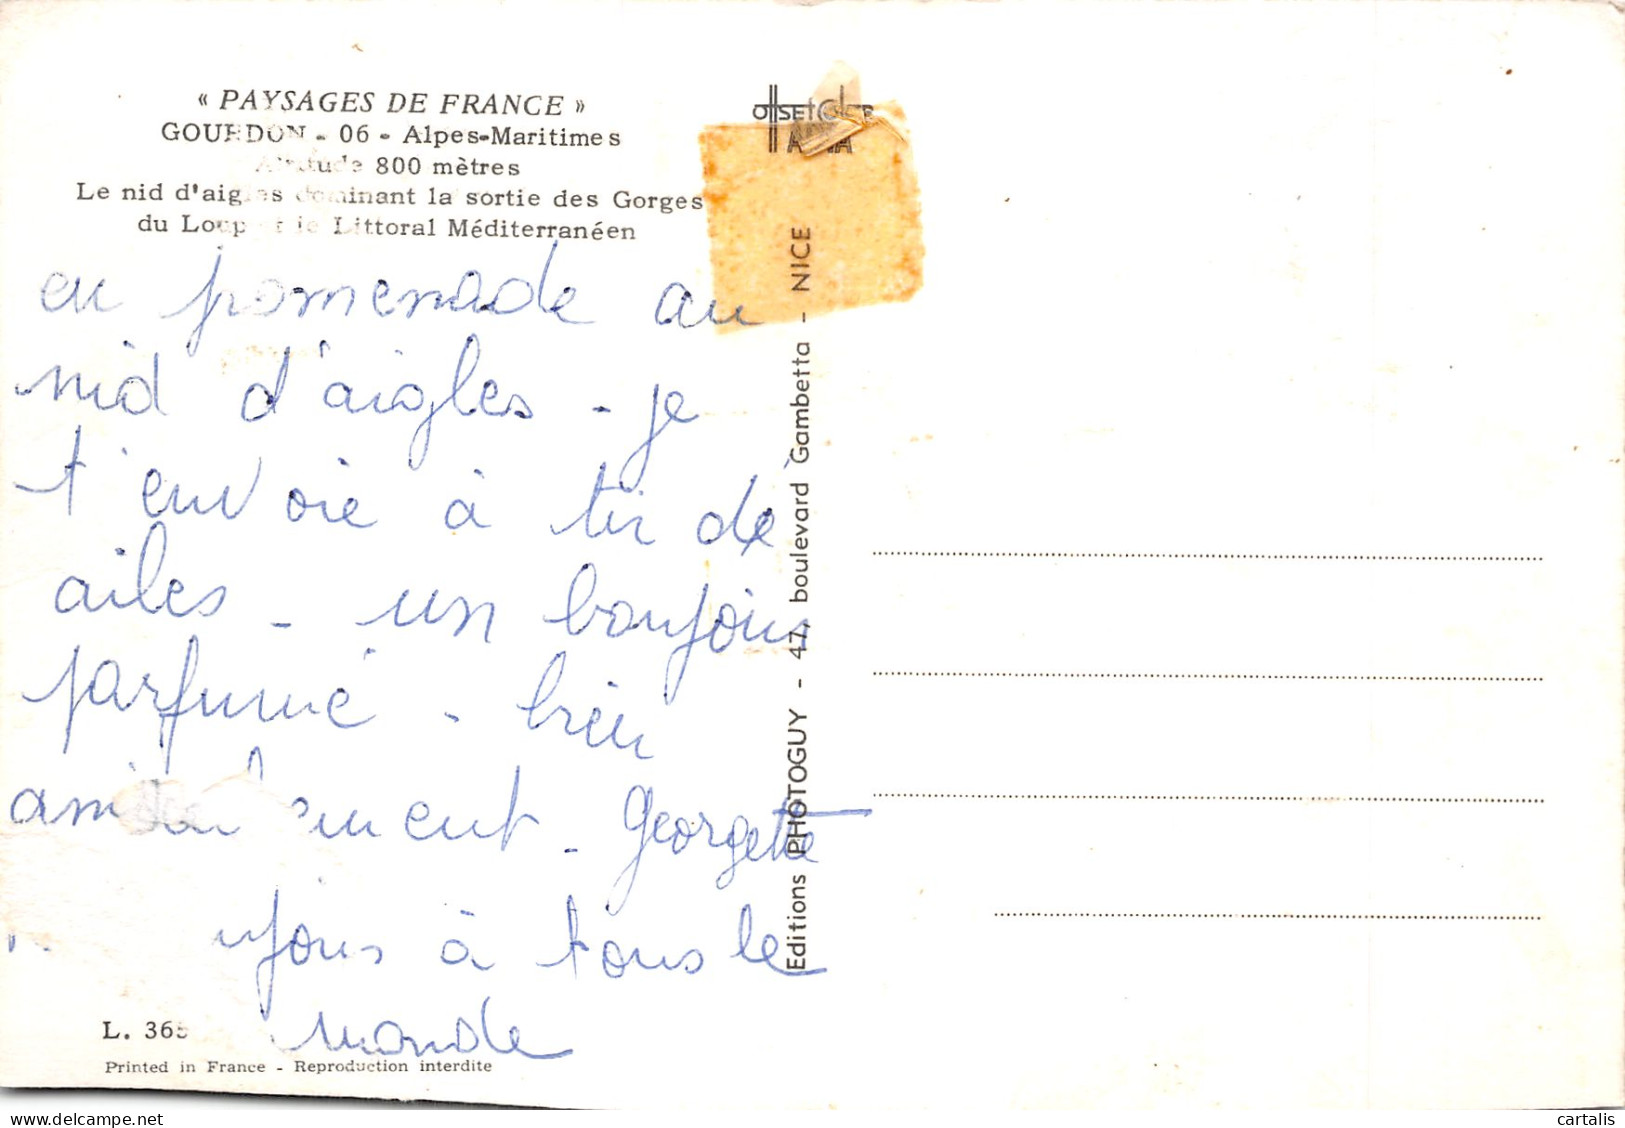 « PAYSAGES DE FRANCE »
GOURDON - 06 - Alpes-Maritimes
Altitude 800 mètres
Le nid d'aigles dominant la sortie des Gorges
du Loup et le Littoral Méditerranéen
en promenade au
nid d'aigles - je
t'envoie à tir de
ailes - un bonjour
parfumé - bien
amicalement - Georgette
à tous le
monde
L. 365
Printed in France - Reproduction interdite
Editions PHOTOGUY - 47, boulevard Gambetta - NICE
cartalis